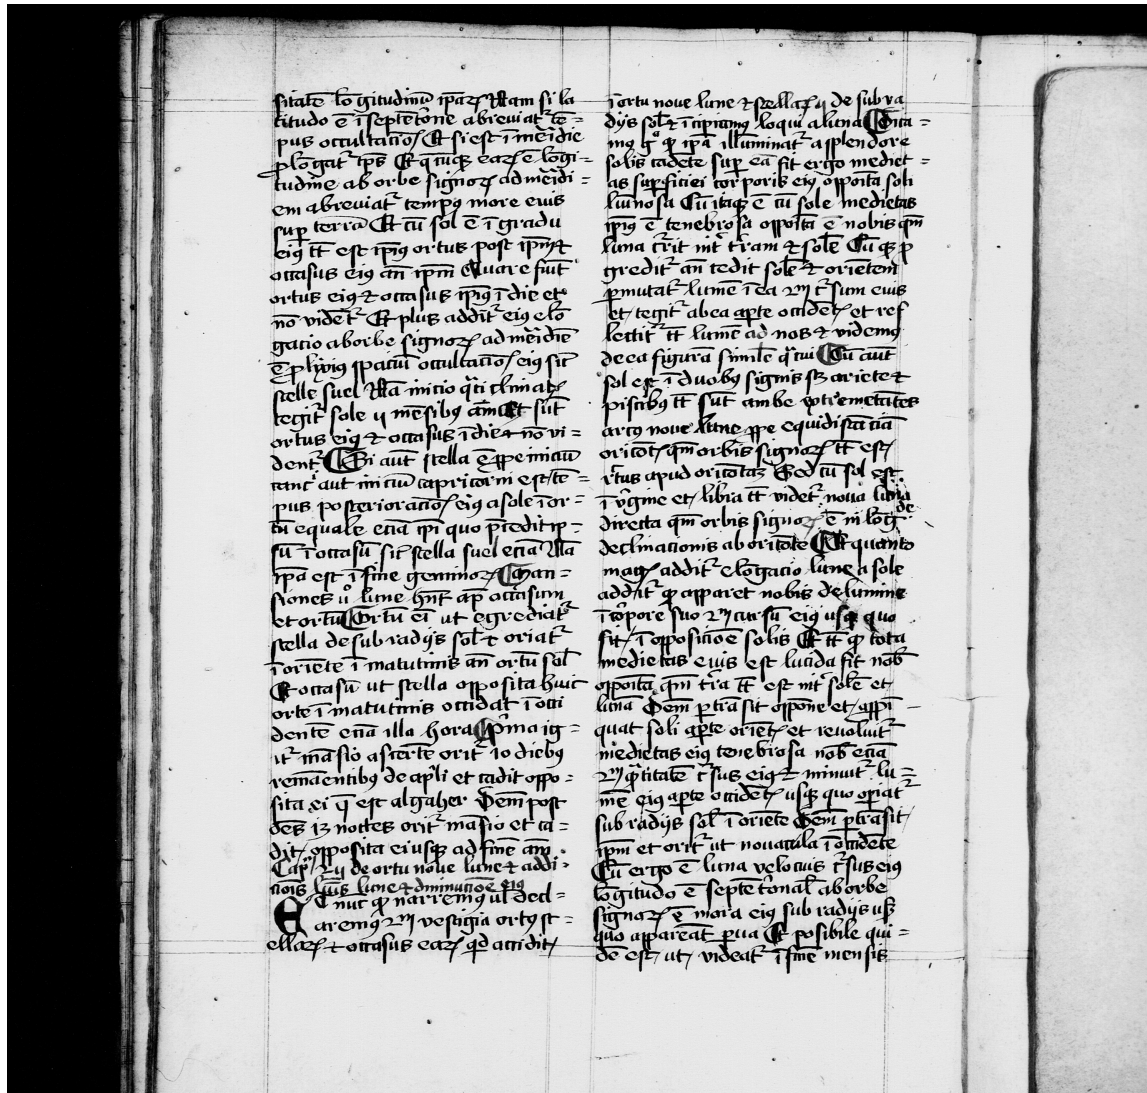 sitatē lōgitudinū ipaꝝ Nam si la
titudo ē ī septētrōne abreviat᷑ tē=
pus occultacioīs Et si est ī meīdie
ꝓlōgat᷑ tp̄s Et qͥcūqꝫ eaꝝ ē lōgi=
tudine ab orbe signoꝝ ad meīdi=
em abreviat᷑ tempꝰ more euis
suꝑ terrā Et cū sol ē ī gradu
eiꝰ tc̄ est ipīꝰ ortus post ipm̄ et
occasus eiꝰ an̄ ipm̄ Quare fiūt
ortus eiꝰ et occasus ipīꝰ ī die et
nō vidēt᷑ Et plus addit᷑ eiꝰ elō
gacio ab orbe signoꝝ ad meīdiē
ē ꝓlixiꝰ spaciū occultacioīs eiꝰ sic̄
stelle suel Nā inicio
tegit᷑ sole ij mēsibꝰ Et sūt
ortus eiꝰ et occasus ī die et nō vi=
dent᷑ Si aūt stella ē ꝓpe iniciū
canc̄ aut iniciū capricorni est tē=
pus posterioracioīs eiꝰ a sole ī or=
tū equale eciā ipī quo
sū ī occasū sic̄ stella suel eciā Nā
ipā est ī fine geminoꝝ Man=
siones ūͦ lune hn̄t ap̄ occasum
et ortū Ortū eī ut egrediat᷑
stella de sub radijs sol̄ et oriat᷑
ī oriēte ī matutinis an̄ ortū sol̄
Et occasū ut stella opposita huic
orte ī matutinis occidat ī occi
dente eciā illa hora Pͥma ig=
it᷑ māsio asserte orit᷑ 10 diebꝰ
remāentibꝰ de apͥli et cadit oppo=
sita ei q̄ est algaher Dem̄ post
oēs 13 noctes orit᷑ māsio et ca=
dit opposita eiusqꝫ ad finē am̄
Capͫ xij de ortu nove lune et addi
cioīs luīs lune et diminucioē eiꝰ
Et nūc qͥ narremꝰ ul̄ decl=
aremꝰ 2ꝫ vestigia ortꝰ st=
ellaꝝ et occasus eaꝝ qd̄ accidit
ī ortu nove lune et stellaꝝ ij de sub ra
dijs sol̄ et īcipiamꝰ loqui a luna Dica=
mꝰ gͦ qͥ ipā illūminat᷑ a splendore
solis cadēte suꝑ eā fit ergo mediet=
as suꝑficiei corporis eiꝰ oppoīta soli
luīnosa Cū itaqꝫ ē cū sole medietas
ipīꝰ ē tenebrosa oppoīta ē nobis qm̄
luna t᷑rit int᷑ t᷑ram et solē Cūqꝫ ꝓ
gredit᷑ an̄ cedit solē et oriētem
ꝑmutat᷑ lumē ī ea 2ꝫ c᷑sum euis
et tegit᷑ ab ea aꝑte occidēt et ref
lectit᷑ tc̄ lumē ad nos et videmꝰ
de ea figurā similē qͣ tui Cū aūt
sol est ī duobꝰ signis sꝫ ariete et
piscibꝰ tc̄ sūt ambe extremetates
arcꝰ nove lune ꝓpe equidistāciā
oricōt qm̄ orbis signoꝝ tc̄ est
r̄tus apud oricōtaꝫ Sed cū sol est
ī v᷑gine et libra tc̄ videt᷑ nova luna
directa qm̄ orbis signoꝝ ē in lōg de
declinacionis ab oricōte Et quanto
magꝭ addit᷑ elōgacio lune a sole
addit᷑ qͥ apparet nobis de lumine
ī cōrpore suo 2ꝫ cursū eiꝰ usqꝫ quo
sit ī opposicioē solis Et tc̄ qͥ tota
medietas euis est lucida fit nob̄
oppoīta qm̄ t᷑ra tc̄ est int᷑ solē et
lunā Dem̄ ꝑtrāsit oppoīē et appī
quat soli aꝑte oriēt et revoluit᷑
medietas eiꝰ tenebrosa nob̄ eciā
2ꝫ qͣtitatē c᷑sus eiꝰ et minuit᷑ lu=
mē eiꝰ aꝑte occidēt usqꝫ quo opiat᷑
sub radijs sol̄ ī oriēte Dem̄ ꝑtrāsit
ipm̄ et orit᷑ ut novacula ī occidēte
Cū ergo ē luna velocius c᷑sus eiꝰ
lōgitudo ē septētͥonal̄ ab orbe
signaꝝ ē mora eiꝰ sub radijs usꝫ
quo appareāt ꝑua Et posibile qui=
dē est ut videat᷑ ī fine mensis